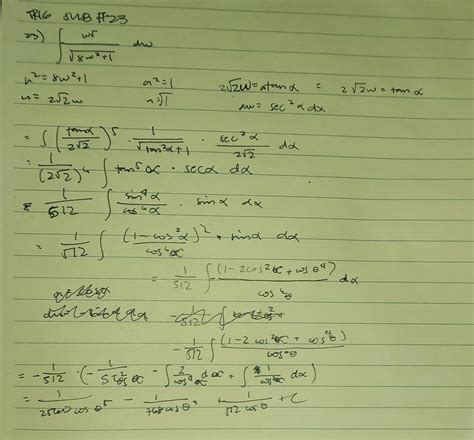 TRIG SUB #23
23) ∫ w⁵/√(8w²+1) dw
u² = 8w²+1 a² = 1 2√2w = atanα = 2√2w = tanα
u = 2√2w a = √1 dw = sec²α dα
= ∫ (tanα/2√2)⁵ · 1/√(tan²α+1) · sec²α/2√2 dα
= 1/(2√2)⁶ ∫ tan⁵α · secα dα
1/512 ∫ sin⁴α/cos⁶α · sinα dα
= 1/512 ∫ (1-cos²α)²/cos⁶α · sinα dα
= 1/512 ∫ (1-2cos²α + cosθ⁴)/cos⁶θ dα
-1/512 ∫ (1-2cos²α + cos⁴θ)/cos⁶θ
= -1/512 · (-1/5cos⁵α - ∫ 2/cos⁴α dα + ∫ 1/cos²α dα)
= 1/2560cosθ⁵ - 1/768cosθ + 1/512cosθ + C